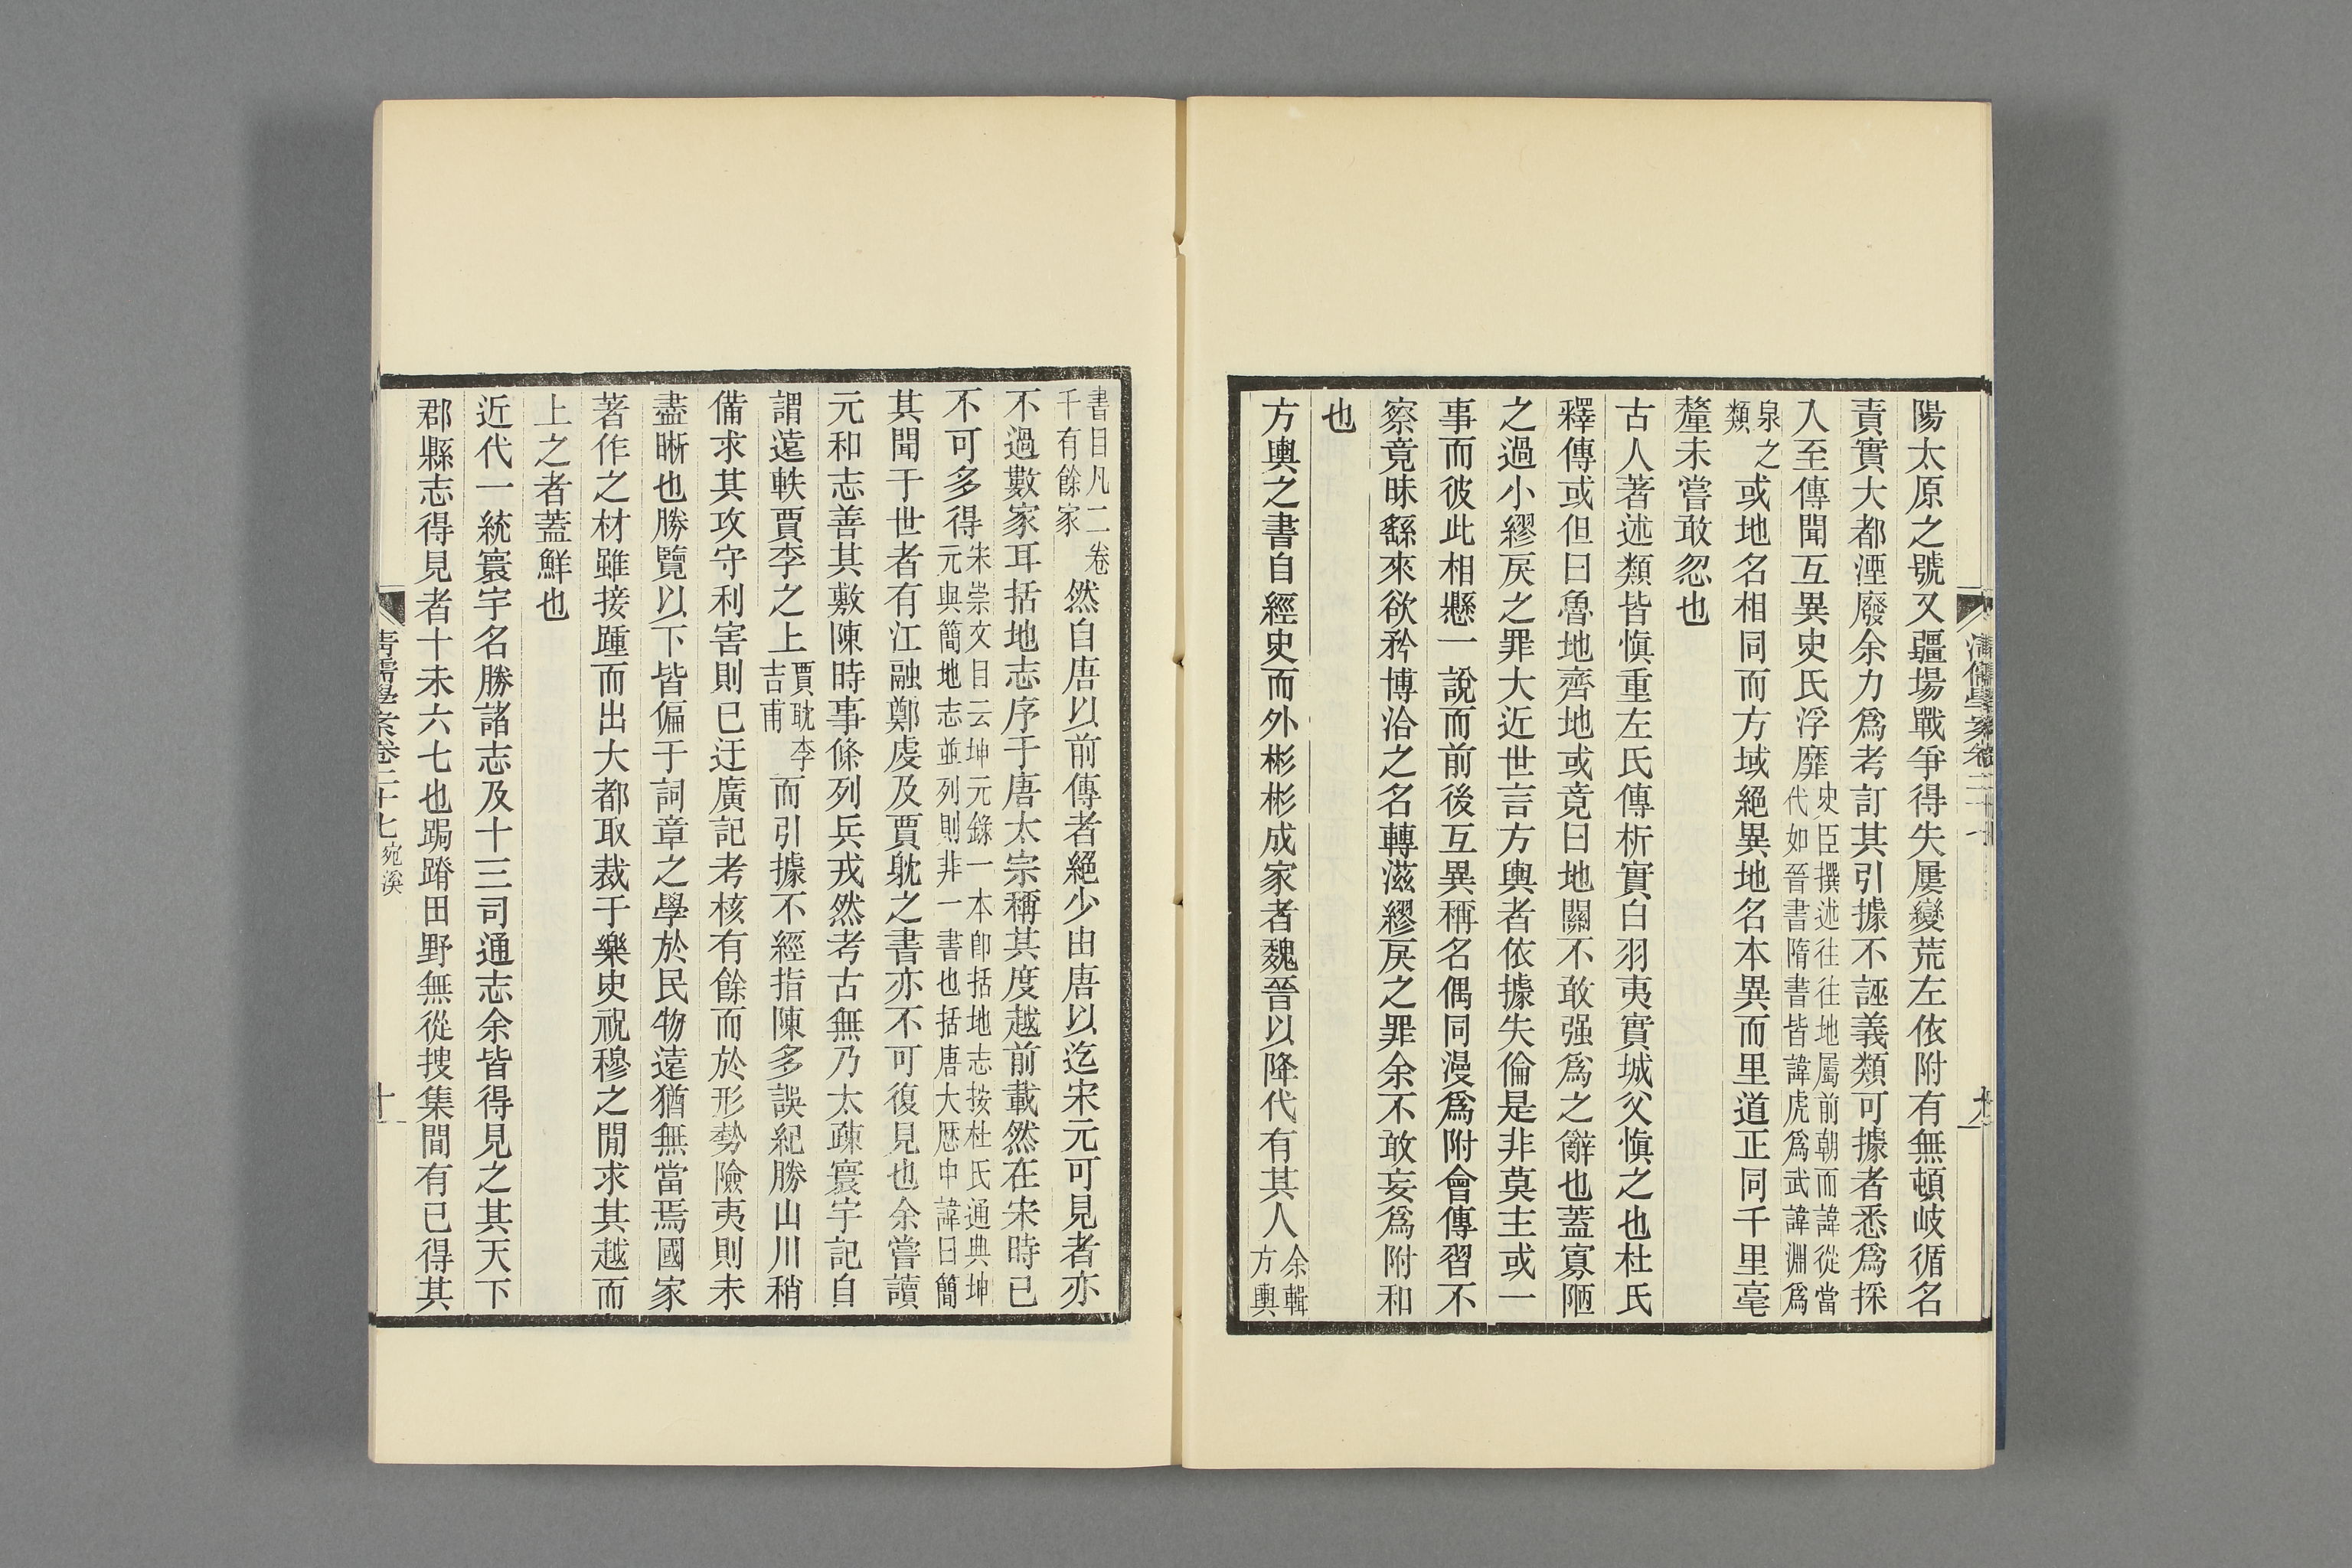 陽太原之號又疆場戰爭得失屢變荒左依附有無頓岐循名
責實大都湮廢余力爲考訂其引據不誣義類可據者悉爲採
入至傳聞互異史氏浮靡史臣撰述往往地屬前朝而諱從當代如晉書隋書皆諱虎爲武諱淵爲
泉之類或地名相同而方域絕異地名本異而里道正同千里毫
釐未嘗敢忽也
古人著述類皆愼重左氏傳析實白羽夷實城父愼之也杜氏
釋傳或但曰魯地齊地或竟曰地闕不敢强爲之辭也蓋寡陋
之過小繆戾之罪大近世言方輿者依據失倫是非莫主或一
事而彼此相懸一說而前後互異稱名偶同漫爲附會傳習不
察竟昧繇來欲矜博洽之名轉滋繆戾之罪余不敢妄爲附和
也
方輿之書自經史而外彬彬成家者魏晉以降代有其人余輯方輿
清儒學案卷二十七
九
書目凡二卷千有餘家然自唐以前傳者絕少由唐以迄宋元可見者亦
不過數家耳括地志序于唐太宗稱其度越前載然在宋時已
不可多得宋崇文目云坤元錄一本卽括地志按杜氏通典坤元與簡地志並列則非一書也括唐大曆中諱曰簡
其聞于世者有江融鄭虔及賈躭之書亦不可復見也余嘗讀
元和志善其敷陳時事條列兵戎然考古無乃太疎寰宇記自
謂遠軼賈李之上賈耽李吉甫而引據不經指陳多誤紀勝山川稍
備求其攻守利害則已迂廣記考核有餘而於形勢險夷則未
盡晰也勝覽以下皆偏于詞章之學於民物遠猶無當焉國家
著作之材雖接踵而出大都取裁于樂史祝穆之閒求其越而
上之者蓋鮮也
近代一統寰宇名勝諸志及十三司通志余皆得見之其天下
郡縣志得見者十未六七也跼蹐田野無從搜集間有已得其
清儒學案卷二十七宛溪
十